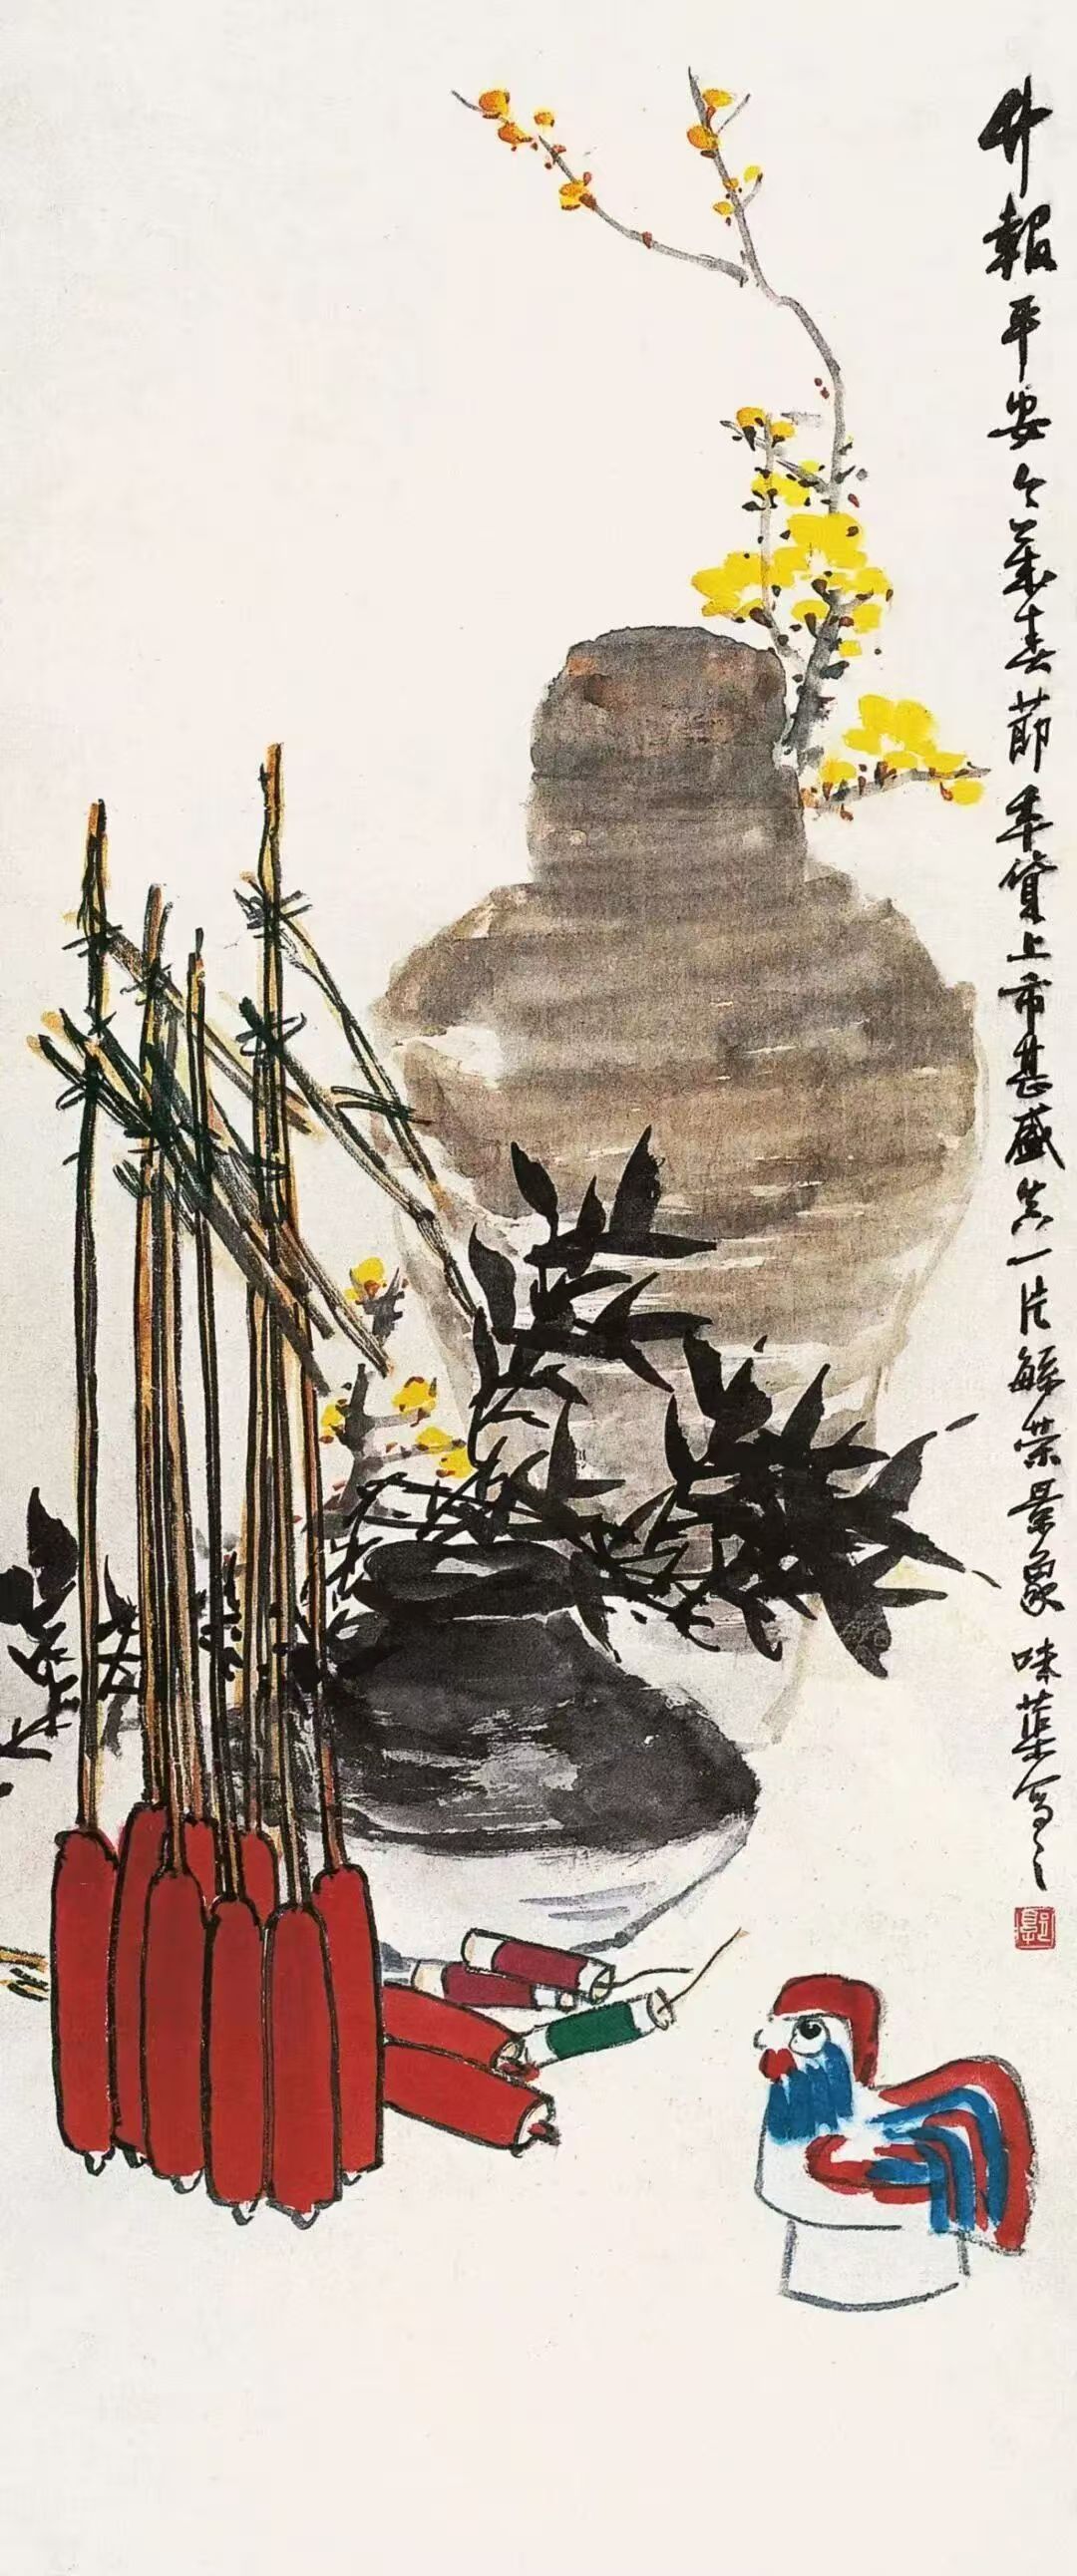 竹報平安今歲春節年貨上市甚盛真一片繁榮景象 味蕖寫之
郭